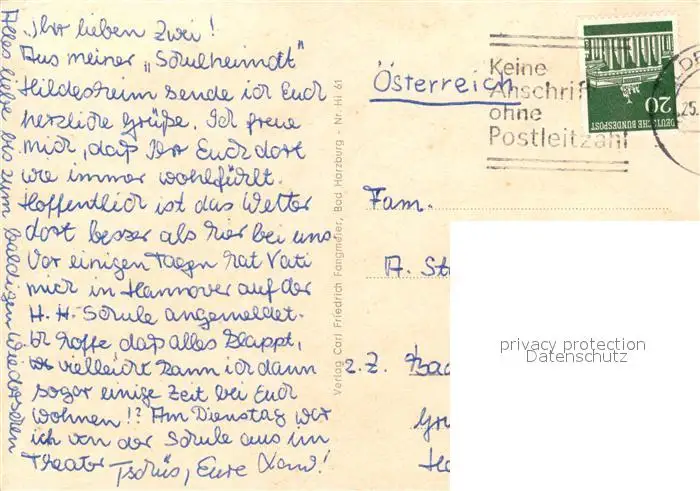 Ihr lieben Zwei!
Aus meiner „Schulheimatt"
Hildesheim sende ich Euch
herzliche Grüße. Ich freue
mich, daß Ihr Euch dort
wie immer wohlfühlt.
Hoffentlich ist das Wetter
dort besser als hier bei uns
Vor einigen Tagen hat Vati
mich in Hannover auf der
H. H. Schule angemeldet.
Ich hoffe daß alles klappt,
vielleicht kann ich dann
sogar einige Zeit bei Euch
wohnen!? Am Dienstag war
ich von der Schule aus im
Theater Tschüs, Eure
Alles liebe bis zum baldigen Wiedersehen
Verlag Carl Friedrich Fangmeier, Bad Harzburg - Nr. Hi 61
Österreich
Keine
Anschrift
ohne
Postleitzahl
DEUTSCHE BUNDESPOST
20
25.
Fam.
A. St
z. Z. Bad
privacy protection
Datenschutz